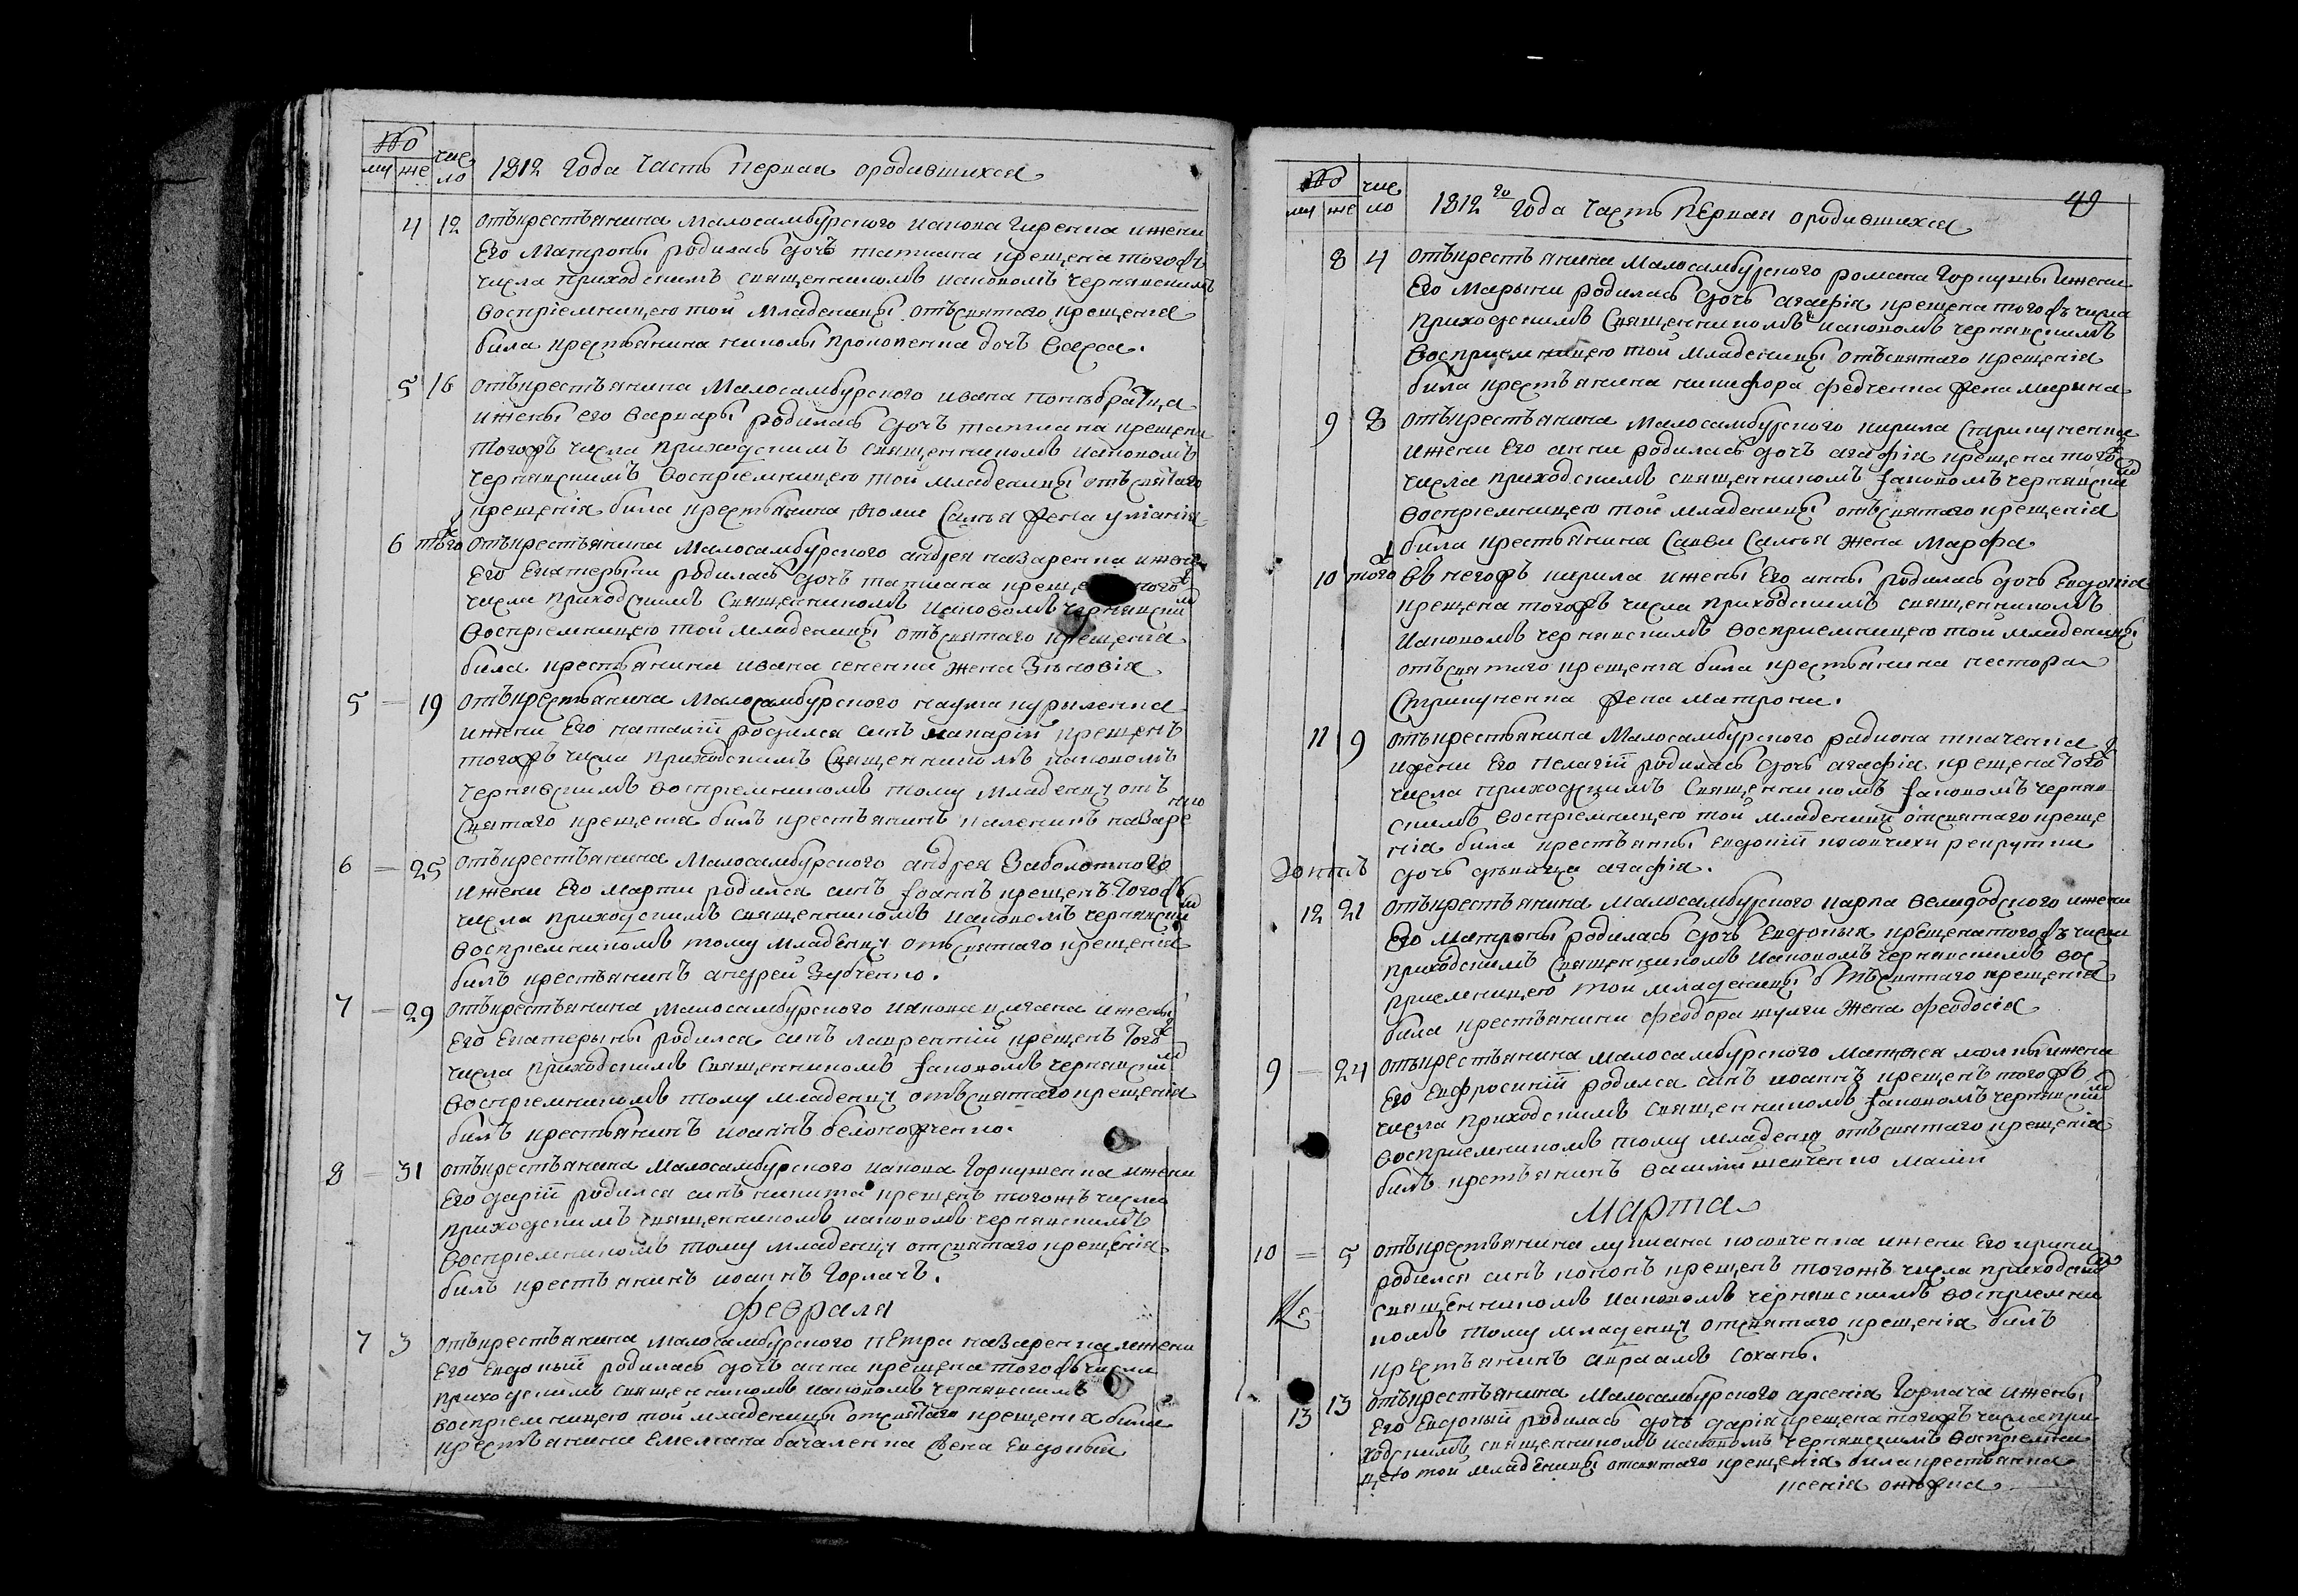 № чис
му же ло 1812 года Часть Первая ородившихся
4 12 отъкрестьянина Малосамбурского иакова Гиренка ижени
Его Матроны родилась дочъ татиана крещена тогожъ
числа приходскимъ священникомъ иаковомъ чернявскимъ
восприемницею той младеницы отъ святаго крещения
била крестьянина николы прокопенка дочь васса.
5 16 отъкрестьянина Малосамбурского ивана
ижены его варвары родилась дочъ татиана крещена
тогожъ числа приходскимъ священникомъ иаковомъ
чернявскимъ восприемницею той младеницы отъ святаго
крещенія била крестьянина фоми жена
6 того отъкрестьянина Малосамбурского андрея назаренка ижени
Его Екатерыни родилась дочъ татиана тогож
числа приходскимъ священникомъ иаковомъ чернявским
восприемницею той младеницы отъ святаго крещенія
била крестьянина ивана сененка жена Зѣновія
5 — 19 отъкрестьянина Малосамбурского наума курыленка
ижени Его наталіи родился синъ макарій крещенъ
тогожъ числа приходскимъ священникомъ иаковомъ
чернявскимъ восприемникомъ тому младенцу отъ
святаго крещенія билъ крестьянинъ каленикъ назаренко
6 — 25 отъкрестьянина Малосамбурского андрея Заболотного
ижени Его марти родился синъ іоаннъ крещенъ тогожъ
числа приходскимъ священникомъ иаковомъ чернявским
восприемникомъ тому младенцу отъ святаго крещенія
билъ крестьянинъ андрей Зубченко.
7 — 29 отъкрестьянина малосамбурского иакова ижены
Его Екатерыны родился синъ лаврентій крещенъ тогож
числа приходскимъ священникомъ іаковомъ чернявским
восприемникомъ тому младенцу отъ святаго крещенія
билъ крестьянинъ иоаннъ
8 — 31 отъкрестьянина малосамбурского иакова Горкушенка ижени
Его дарій родился синъ никита крещенъ тогожъ числа
приходскимъ священникомъ иаковомъ чернявскимъ
восприемникомъ тому младенцу от святаго крещенія
билъ крестьянинъ иоаннъ Горкачъ.
февраля
7 3 отъкрестьянина малосамбурского пЕтра назаренка ижени
Его Евдокый родилась дочъ анна крещена тогожъ числа
приходскимъ священникомъ иаковомъ чернявскимъ
восприемницею той младеницы от святаго крещенія била
крестьянина Емелиана бачаленка жена Евдокый
№ чис
му же ло 1812 го года Часть пЕрвая ородившихся 49
8 4 отъкрестьянина малосамбурского романа Горкуши ижени
Его Марыни родилась дочъ агафія крещена тогожъ числа
приходскимъ священникомъ иаковомъ чернявскимъ
восприемницею той младеницы отъ святаго крещенія
била крестьянина никифора федченка жена мирина
9 8 отъкрестьянина малосамбурского кирила Стрикуненка
ижени Его анни родилась дочъ агафія крещена тогож
числа приходскимъ священникомъ іаковомъ чернявским
восприемницею той младеницы отъ святаго крещенія
била крестьянина савви жена Марфа
10 того Въ негожъ кирила ижены Его анны родилась дочь Евдокіа
крещена тогожъ числа приходскимъ священникомъ
иаковомъ чернявскимъ восприемницею той младеницы
отъ святаго крещенія била крестьянина нестора
Стрикуненка жена матрона.
11 9 отъкрестьянина Малосамбурского радиона ткаченка
ижени Его пелагій родилась дочъ агафіа крещена тогож
числа приходскимъ священникомъ іаковомъ черняв
скимъ восприемницею той младеници от святаго креще
нія била крестьянки Евдокій рекрутки
дочъ дѣвица агафія.
12 21 отъкрестьянина малосамбурского карпа ижени
Его Матроны родилась дочъ Евдокыя крещена тогожъ числа
приходскимъ священникомъ иаковомъ чернявскимъ вос
приемницею той младеницы отъ святаго крещенія
била крестьянина феодора шулги жена феодосія
9 — 24 отъкрестьянина малосамбурского Матфея ижени
Его Ефросиній родился синъ иоаннъ крещенъ тогожъ
числа приходскимъ священникомъ іаковомъ чернявским
восприемникомъ тому младенцу отъ святаго крещенія
билъ крестьянинъ василій шевченко малій
Марта
10 — 5 отъкрестьянина лукиана ижени Его ирини
родился синъ кононъ крещенъ тогожъ числа приходским
священникомъ иаковомъ чернявскимъ восприемни
комъ тому младенцу от святаго крещенія билъ
крестьянинъ авраамъ сохань.
13 13 отъкрестьянина Малосамбурского арсенія Горкача ижены
Его Евдокый родилась дочъ дарія крещена тогожъ числа при
ходскимъ священникомъ иаковомъ чернявскимъ восприемни
цею той младеницы от святаго крещенія била крестьянка
ксенія